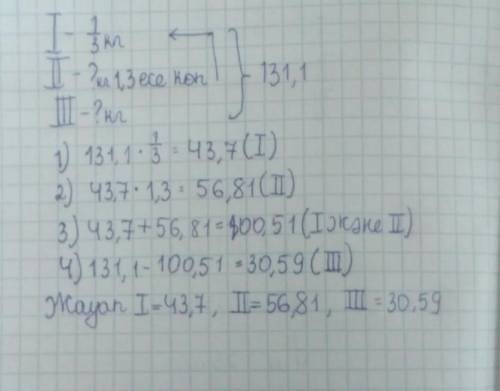 I - 1/3 кг
II - ? кг 1,3 есе көп
III - ? кг
131,1
1) 131,1 · 1/3 = 43,7 (I)
2) 43,7 · 1,3 = 56,81 (II)
3) 43,7 + 56,81 = 100,51 (I және II)
4) 131,1 - 100,51 = 30,59 (III)
Жауап I = 43,7, II = 56,81, III = 30,59